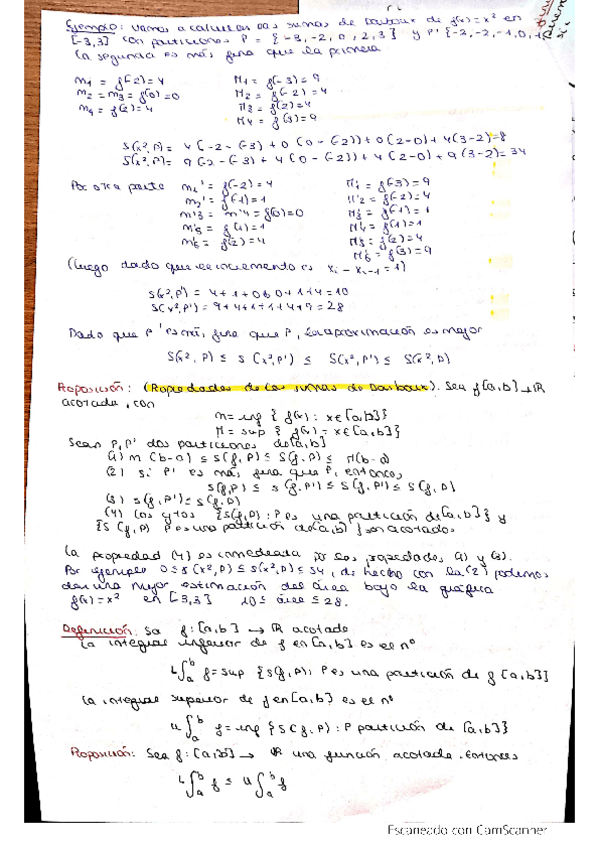 Ejemplo: Vamos a calcular las sumas de Darboux de f(x)=x² en
[-3,3] con particiones P = {-3,-2,0,2,3} y P' {-2,-2,-1,0,1
la segunda es más fina que la primera
m1 = f(-2)=4 M1 = f(-3)=9
m2=m3= f(0)=0 M2 = f(-2)=4
m4 = f(2)=4 M3 = f(2)=4
M4 = f(3)=9
s(x²,P)= 4(-2-(-3)+0(0-(-2))+0(2-0)+4(3-2)=8
S(x²,P)= 9(-2-(-3)+4(0-(-2))+4(2-0)+9(3-2)=34
Por otra parte m1' = f(-2)=4 M1' = f(-3)=9
m2' = f(-1)=1 M'2 = f(-2)=4
m'3 = m'4 = f(0)=0 M'3 = f(-1)=1
m'5 = f(1)=1 M'4 = f(1)=1
m'6 = f(2)=4 M'5 = f(2)=4
M'6 = f(3)=9
(luego dado que el incremento es xi - xi-1 = 1)
s(x²,P') = 4+1+0+0+1+4=10
S(x²,P') = 9+4+1+1+4+9=28
Dado que P' es más fina que P, la aproximación es mejor
s(x², P) ≤ s(x²,P') ≤ S(x²,P') ≤ S(x²,P)
Proposición: (Propiedades de las sumas de Darboux). Sea f[a,b]→R
acotada, con
m=inf { f(x): x∈[a,b]}
M=sup { f(x) = x∈[a,b]}
Sean P,P' dos particiones de[a,b]
(1) m(b-a) ≤ s(f,P) ≤ S(f,P) ≤ M(b-a)
(2) si P' es más fina que P, entonces
s(f,P) ≤ s(f,P') ≤ S(f,P') ≤ S(f,P)
(3) s(f,P') ≤ S(f,P)
(4) Los ctos {s(f,P): P es una partición de[a,b]} y
{S(f,P) P es una partición de[a,b]} son acotados
La propiedad (4) es inmediata por las propiedades (1) y (3).
Por ejemplo 0≤s(x²,P)≤S(x²,P)≤54, de hecho con la (2) podemos
dar una mejor estimación del área bajo la gráfica
f(x)=x² en [-3,3] 10≤ área ≤28.
Definición: Sea f:[a,b] → R acotada
La integral inferior de f en [a,b] es el nº
L∫ₐᵇ f=sup {s(f,P): P es una partición de f [a,b]}
La integral superior de f en[a,b] es el nº
U∫ₐᵇ f=inf {S(f,P): P partición de [a,b]}
Proposición: Sea f:[a,b]→ R una función acotada. Entonces
L∫ₐᵇ f ≤ U∫ₐᵇ f
Escaneado con CamScanner